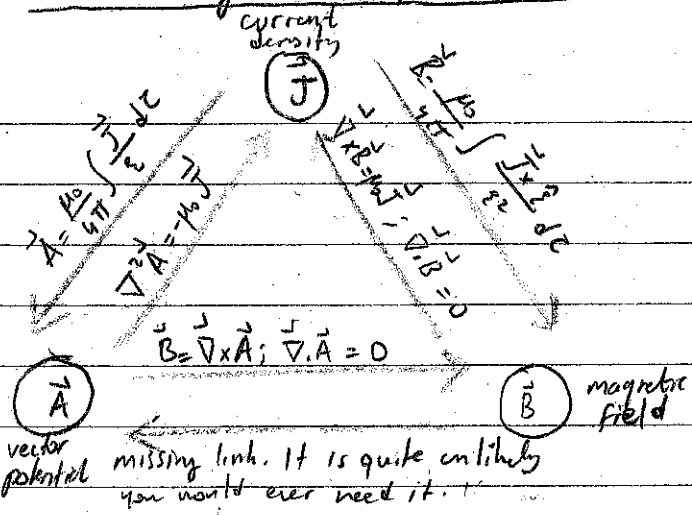 current
density
J⃗
A⃗ = μ₀/4π ∫ J⃗/𝓇 dτ
∇²A⃗ = -μ₀ J⃗
∇⃗×B⃗ = μ₀J⃗ ; ∇⃗.B⃗ = 0
B⃗ = μ₀/4π ∫ J⃗×𝓇̂/𝓇² dτ
B⃗ = ∇⃗×A⃗ ; ∇⃗.A⃗ = 0
A⃗
vector
potential
B⃗
magnetic
field
missing link. It is quite unlikely
you would ever need it.